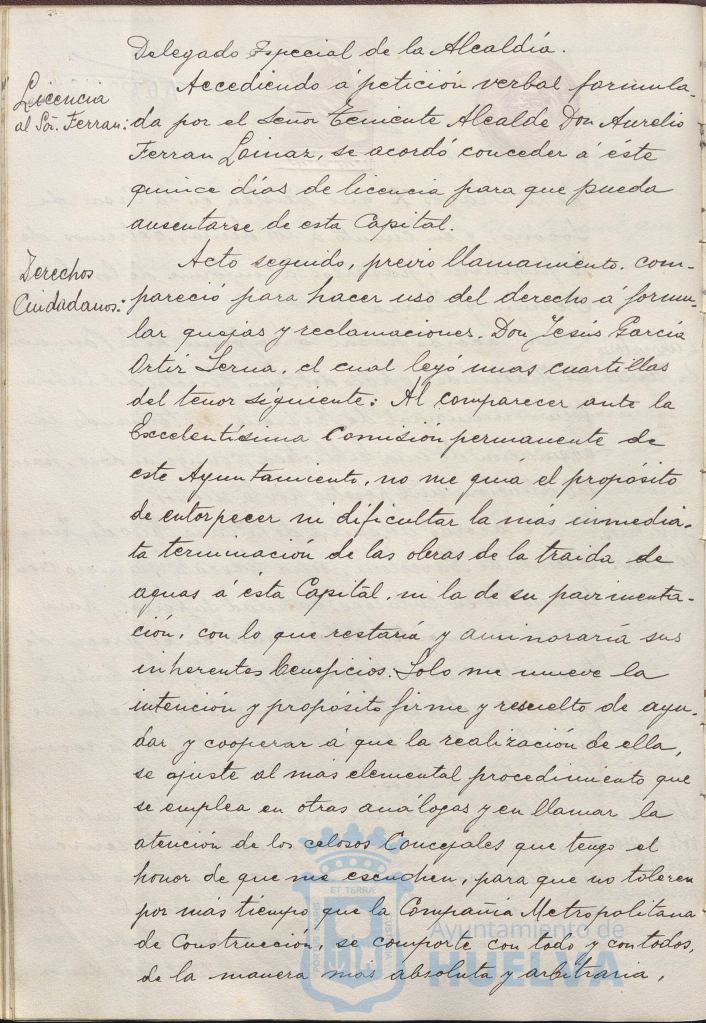 Delegado Especial de la Alcaldía.
Licencia
al Sor. Ferran:
Accediendo á petición verbal formula-
da por el Señor Teniente Alcalde Don Aurelio
Ferran Loinaz, se acordó conceder á éste
quince días de licencia para que pueda
ausentarse de esta Capital.
Derechos
Ciudadanos:
Acto seguido, previo llamamiento, com-
pareció para hacer uso del derecho á formu-
lar quejas y reclamaciones, Don Jesús García
Ortiz Serna, el cual leyó unas cuartillas
del tenor siguiente: Al comparecer ante la
Excelentísima Comisión permanente de
este Ayuntamiento, no me guia el propósito
de entorpecer ni dificultar la más inmedia-
ta terminación de las obras de la traida de
aguas á ésta Capital, ni la de su pavimenta-
ción, con lo que restaría y aminoraría sus
inherentes beneficios. Solo me mueve la
intención y propósito firme y resuelto de ayu-
dar y cooperar á que la realización de ella,
se ajuste al más elemental procedimiento que
se emplea en otras análogas y en llamar la
atención de los celosos Concejales que tengo el
honor de que me escuchen, para que no toleren
por más tiempo que la Compañia Metropolitana
de Construcción, se comporte con todo y con todos,
de la manera más absoluta y arbitraria,
ET TERRÆ
Ayuntamiento de
HUELVA